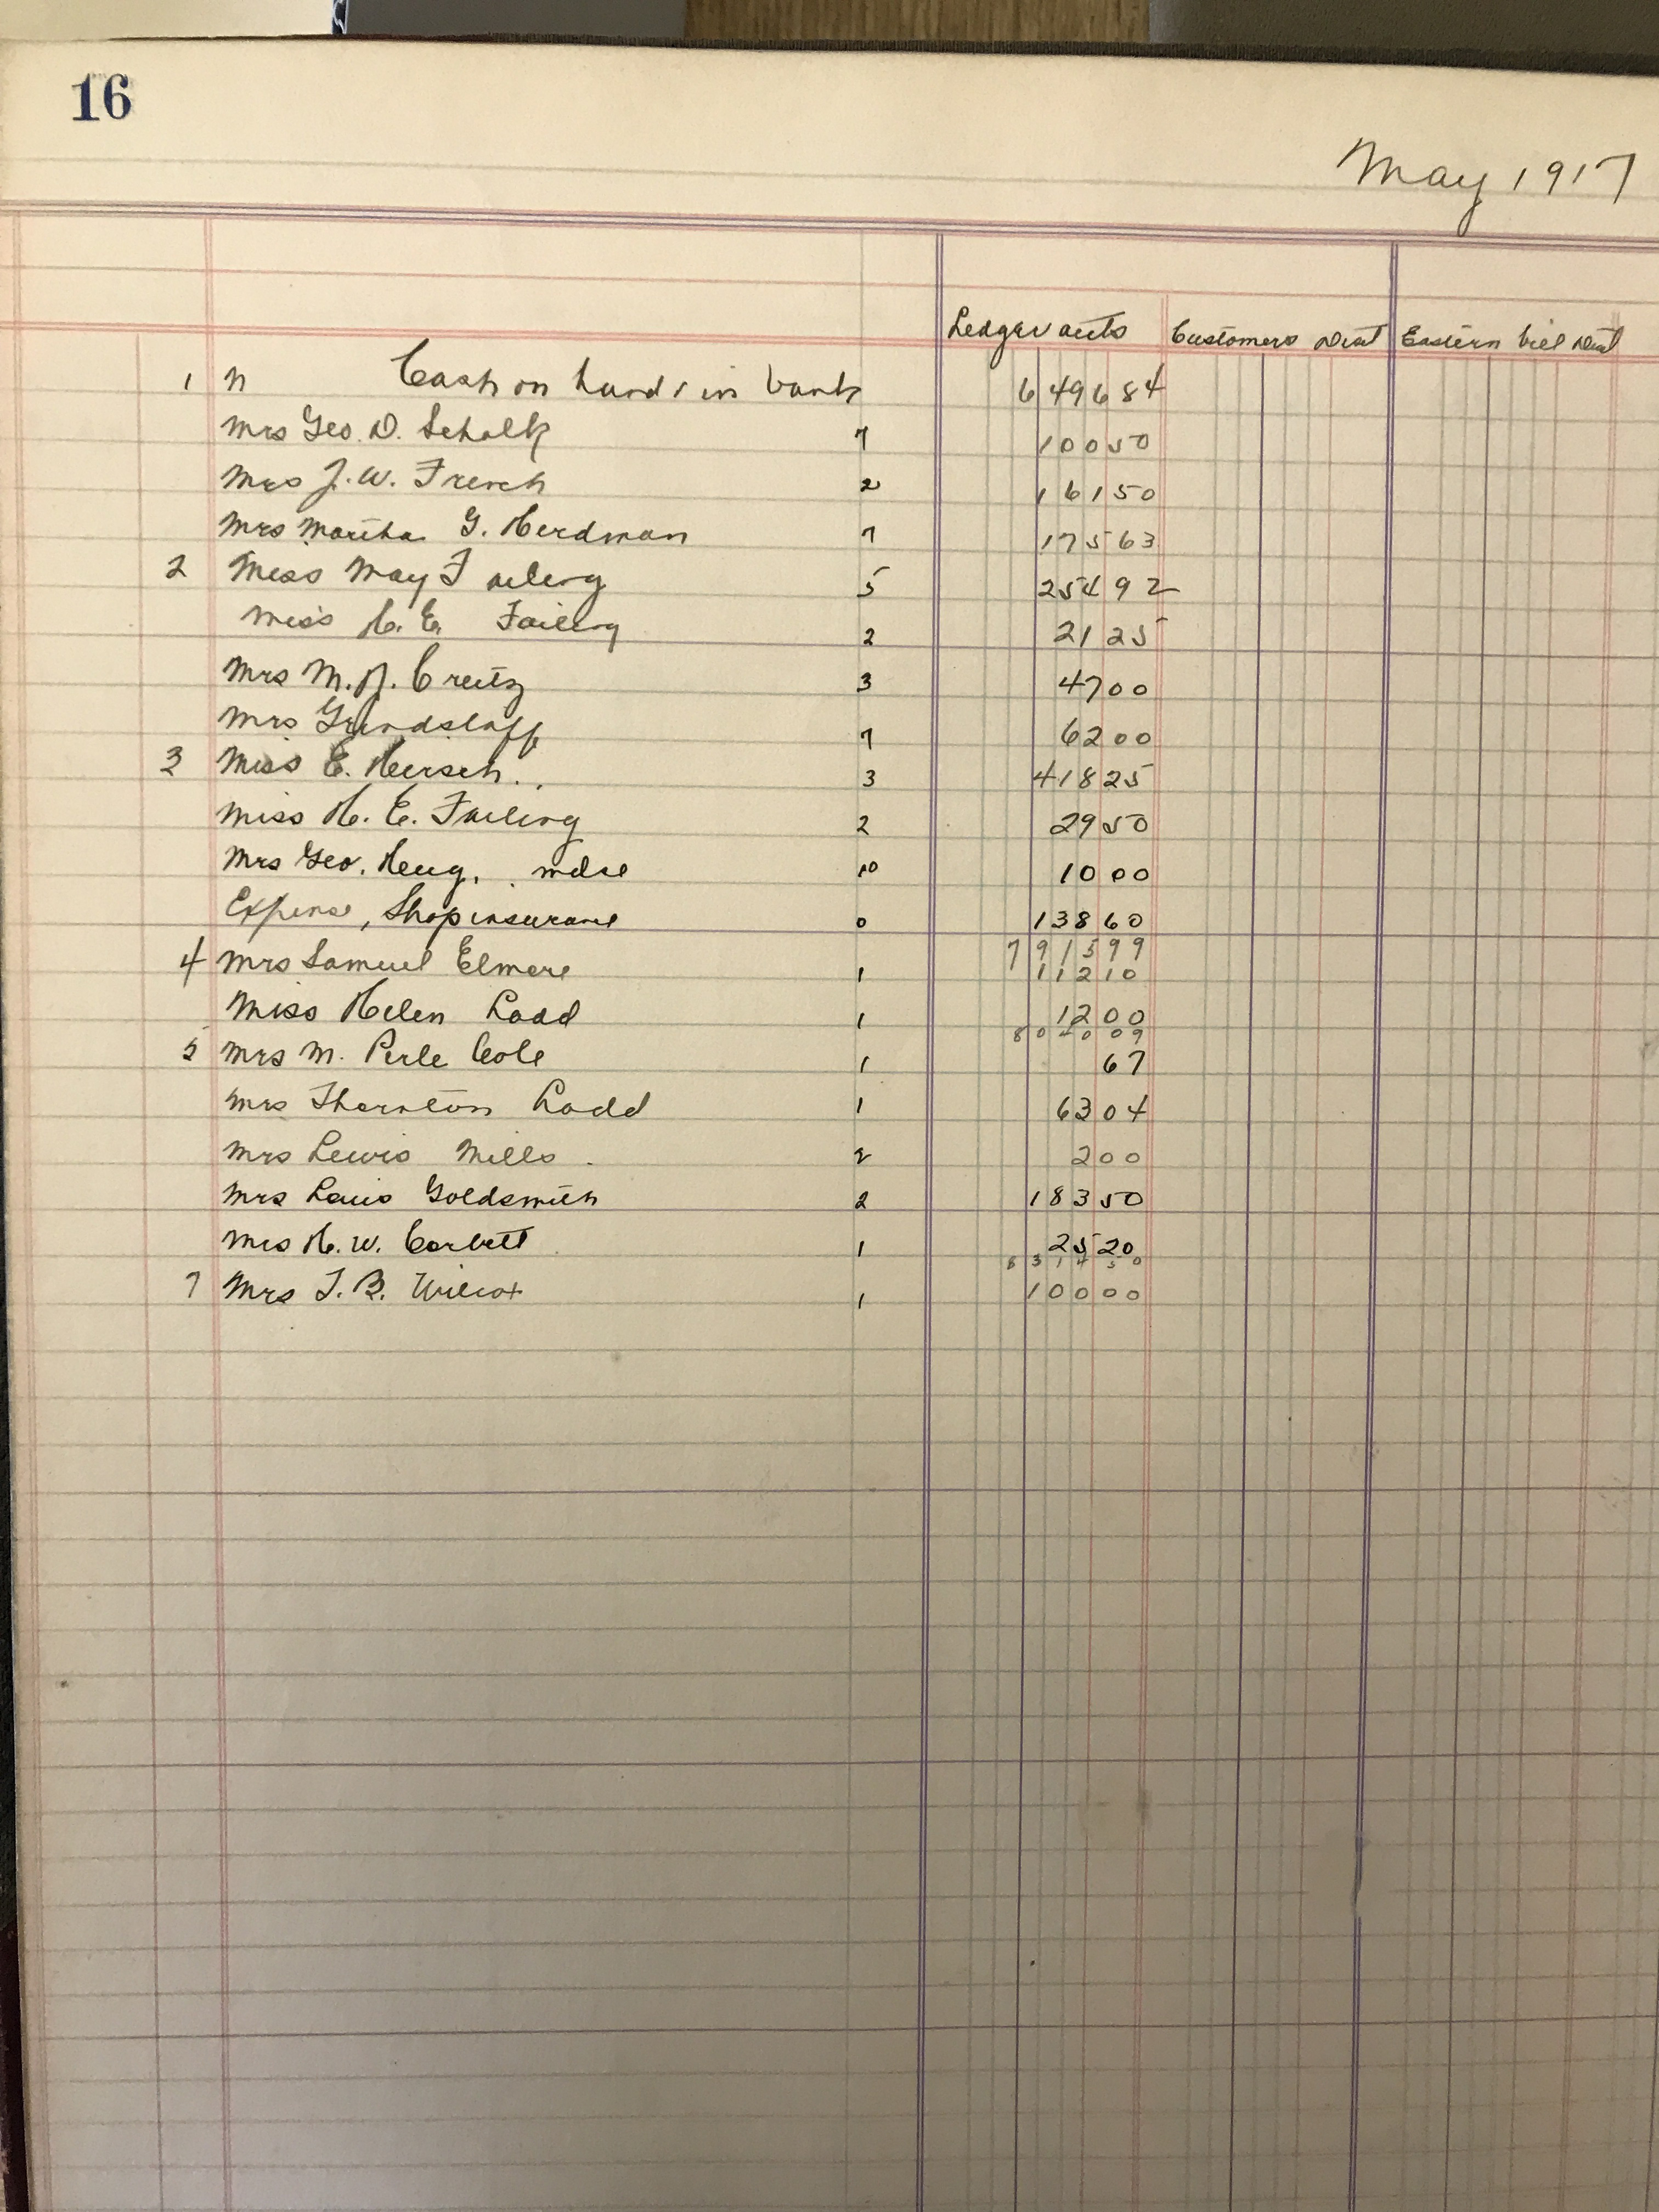 16
May 1917
Ledger accts Customers Dist Eastern Bill Dist
1 n Cash on hand & in bank 6 496 84
Mrs Geo. D. Schalk 7 100 50
Mrs J. W. French 2 161 50
Mrs Martha G. Herdman 7 175 63
2 Miss May Failing 5 254 92
Miss H. E. Failing 2 21 25
Mrs M. J. Creitz 3 47 00
Mrs Grindstaff 7 62 00
3 Miss E. Hirsch. 3 418 25
Miss H. E. Failing 2 29 50
Mrs Geo. mdse 10 10 00
Expense, Shop insurance 0 138 60
7 915 99
4 Mrs Samuel Elmore 1 112 10
Miss Helen Ladd 1 12 00
8 040 09
5 Mrs M. Perle Cole 1 67
Mrs Thornton Ladd 1 63 04
Mrs Lewis Mills. 2 2 00
Mrs Louis Goldsmith 2 183 50
Mrs H. W. Corbett 1 25 20
8 314 50
7 Mrs T. B. Wilcox 1 100 00